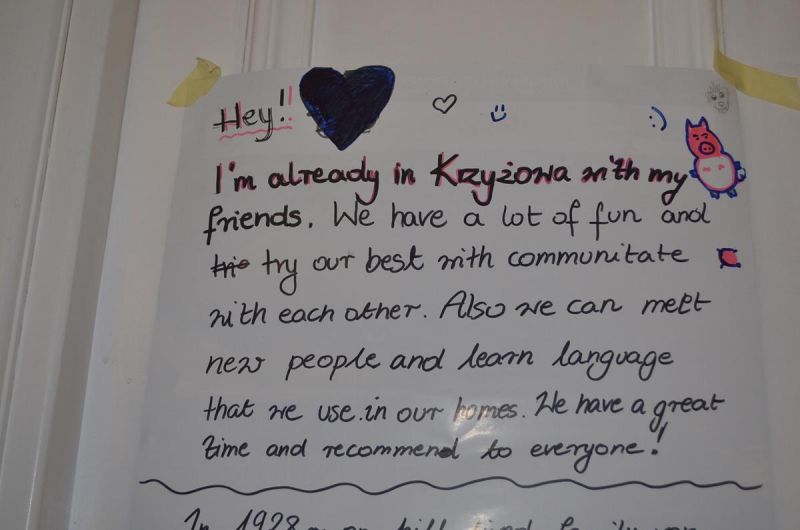 Hey!!
I'm already in Krzyżowa with my
friends. We have a lot of fun and
trie try our best with communitate
with each other. Also we can mett
new people and learn language
that we use in our homes. We have a great
time and recommend to everyone!
In 1928